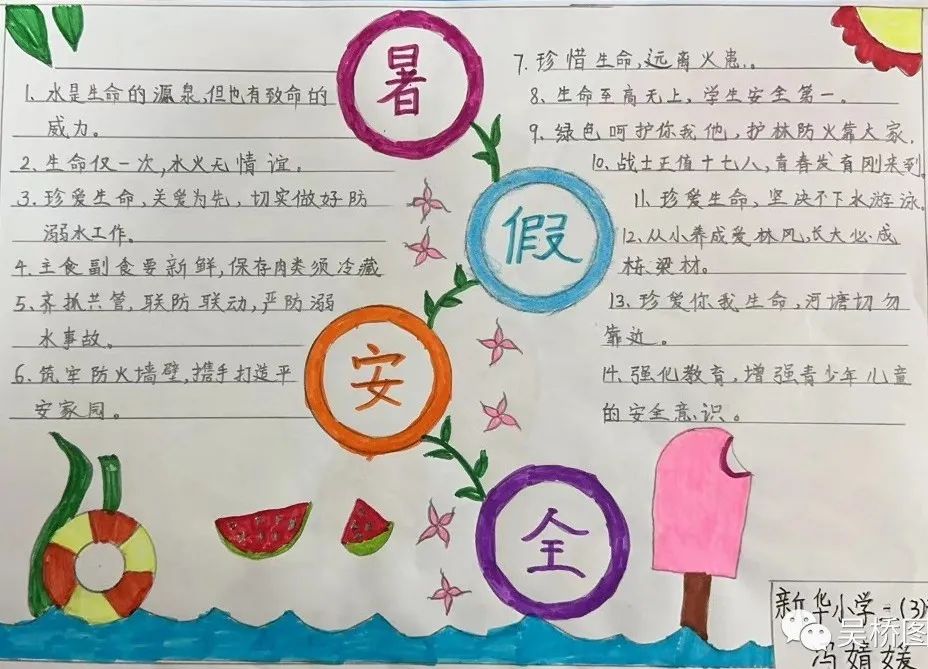 暑
假
安
全
1、水是生命的源泉,但也有致命的
威力。
2、生命仅一次,水火无情谊。
3、珍爱生命,关爱为先,切实做好防
溺水工作。
4、主食副食要新鲜,保存肉类须冷藏
5、齐抓共管,联防联动,严防溺
水事故。
6、筑牢防火墙壁,携手打造平
安家园。
7、珍惜生命,远离火患。
8、生命至高无上,学生安全第一。
9、绿色呵护你我他,护林防火靠大家.
10、战士正值十七八,青春发育刚来到.
11、珍爱生命,坚决不下水游泳.
12、从小养成爱林风,长大必成
栋梁材。
13、珍爱你我生命,河塘切勿
靠近。
14、强化教育,增强青少年儿童
的安全意识。
新华小学一(3)
冯婧媛
吴桥图